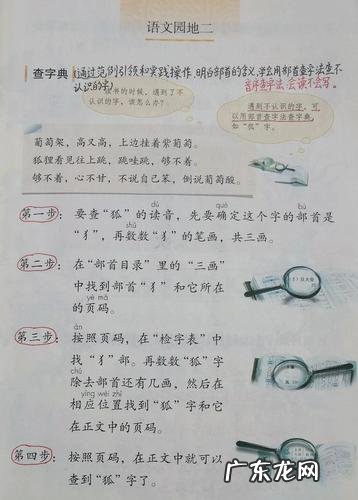 语文园地二
查字典 (通过范例引领和实践操作,明白部首的含义,学会用部首查字法查不
认识的字)
音序查字法:会读不会写。
读书的时候,遇到了不
认识的字,该怎么办?
遇到不认识的字,可
以用部首查字法查字典,
如“狐”字。
葡萄架,高又高,上边挂着紫葡萄。
狐狸看见往上跳,跳哇跳,够不着。
够不着,心不甘,不说自己笨,倒说葡萄酸。
dú què bù
第一步:要查“狐”的读音,先要确定这个字的部首是
shǔ
“犭”,再数数“犭”的笔画,共三画。
第二步:在“部首目录”里的“三画”
中找到部首“犭”和它所在
yè mǎ
的页码。
àn
第三步:按照页码,在“检字表”中
找“犭”部。再数数“狐”字
chú
除去部首还有几画,然后在
xiāng wèi zhì
相应位置找到“狐”字和它
在正文中的页码。
第四步:按照页码,在正文中就可以
查到“狐”字了。
广东龙网